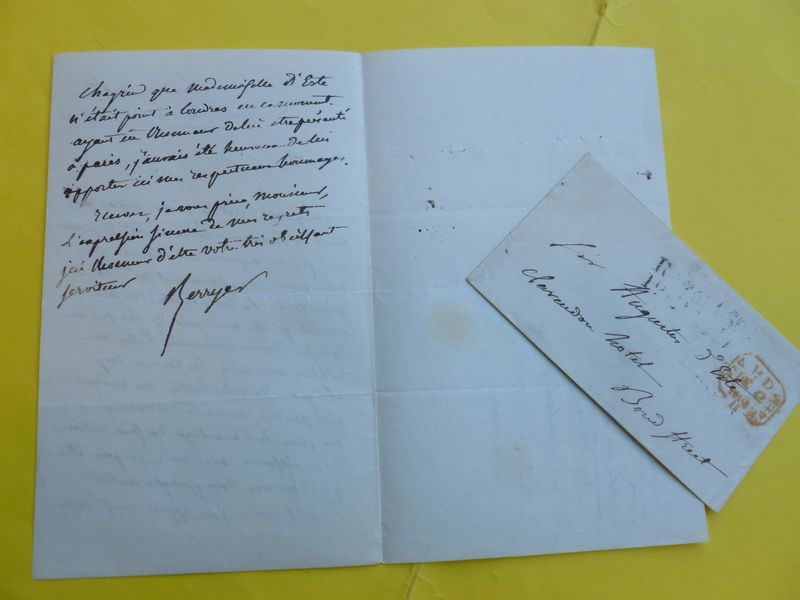 chagrin que Mademoiselle D'Este
n'était point à Londres en ce moment.
ayant eu l'honneur de lui etre présenté
à paris, j'aurais été heureux de lui
apporter ici mes respectueux hommages.
Recevez, je vous prie, Monsieur,
L'expression sincere de mes regrets
j'ai l'honneur d'être votre très obéissant
serviteur
Berryer
Sir Augustus d'Este
Clarendon hotel
Bond street